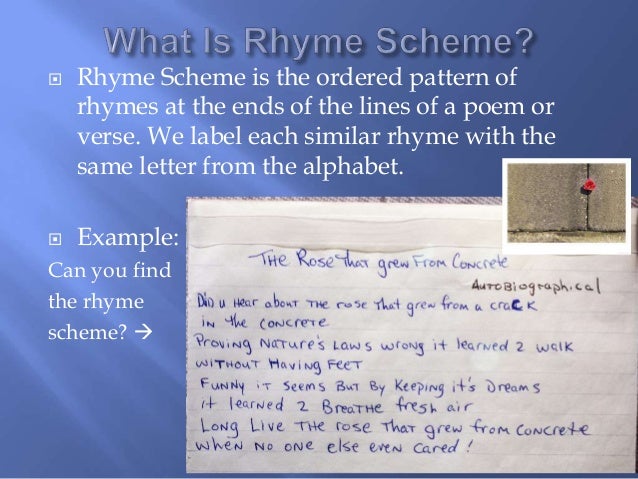 What Is Rhyme Scheme?
Rhyme Scheme is the ordered pattern of
rhymes at the ends of the lines of a poem or
verse. We label each similar rhyme with the
same letter from the alphabet.
Example:
Can you find
the rhyme
scheme? →
The Rose That grew From Concrete
AutoBiographical
Did u Hear about The rose That grew from a crack
in the concrete
Proving Nature's Laws wrong it learned 2 walk
without Having Feet
Funny it seems But By Keeping it's Dreams
it learned 2 Breathe fresh air
Long Live The rose That grew from concrete
when no one else even cared!